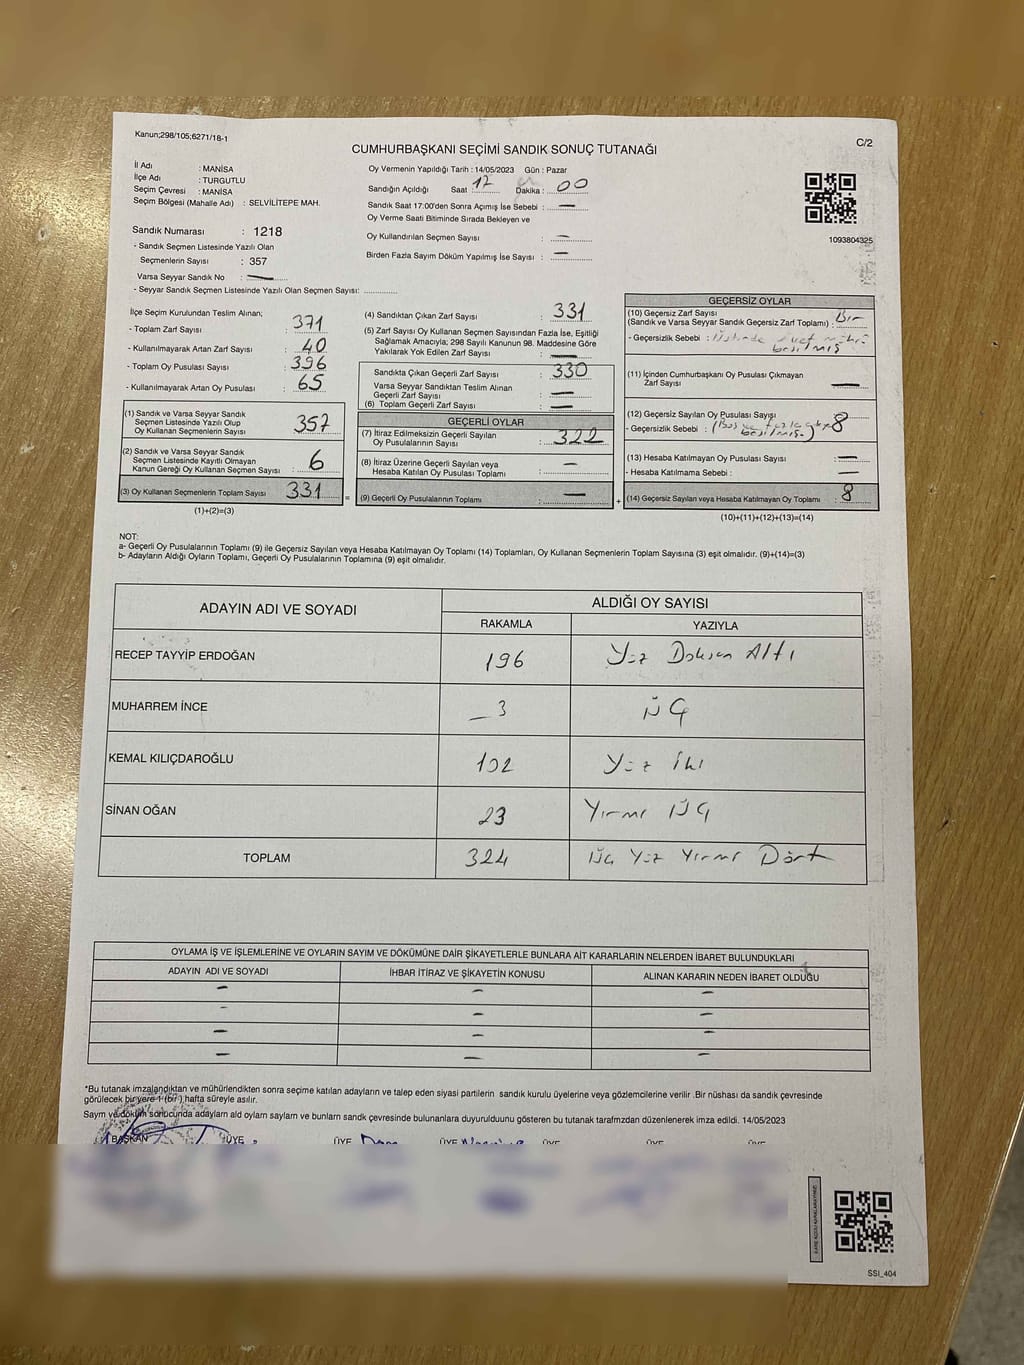 Kanun;298/105;6271/18-1
C/2
CUMHURBAŞKANI SEÇİMİ SANDIK SONUÇ TUTANAĞI
İl Adı : MANİSA
İlçe Adı : TURGUTLU
Seçim Çevresi : MANİSA
Seçim Bölgesi (Mahalle Adı) : SELVİLİTEPE MAH.
Oy Vermenin Yapıldığı Tarih : 14/05/2023 Gün : Pazar
Sandığın Açıldığı Saat : 17 Dakika : 00
Sandık Saat 17:00'den Sonra Açımış İse Sebebi : —
Oy Verme Saati Bitiminde Sırada Bekleyen ve
Oy Kullandırılan Seçmen Sayısı : —
Birden Fazla Sayım Döküm Yapılmış İse Sayısı : —
1093804325
Sandık Numarası : 1218
- Sandık Seçmen Listesinde Yazılı Olan
Seçmenlerin Sayısı : 357
Varsa Seyyar Sandık No : —
- Seyyar Sandık Seçmen Listesinde Yazılı Olan Seçmen Sayısı:
İlçe Seçim Kurulundan Teslim Alınan;
- Toplam Zarf Sayısı : 371
- Kullanılmayarak Artan Zarf Sayısı : 40
- Toplam Oy Pusulası Sayısı : 396
- Kullanılmayarak Artan Oy Pusulası : 65
(1) Sandık ve Varsa Seyyar Sandık
Seçmen Listesinde Yazılı Olup
Oy Kullanan Seçmenlerin Sayısı : 357
(2) Sandık ve Varsa Seyyar Sandık
Seçmen Listesinde Kayıtlı Olmayan
Kanun Gereği Oy Kullanan Seçmen Sayısı : 6
(3) Oy Kullanan Seçmenlerin Toplam Sayısı : 331
(1)+(2)=(3)
(4) Sandıktan Çıkan Zarf Sayısı : 331
(5) Zarf Sayısı Oy Kullanan Seçmen Sayısından Fazla İse, Eşitliği
Sağlamak Amacıyla; 298 Sayılı Kanunun 98. Maddesine Göre
Yakılarak Yok Edilen Zarf Sayısı : —
Sandıkta Çıkan Geçerli Zarf Sayısı : 330
Varsa Seyyar Sandıktan Teslim Alınan
Geçerli Zarf Sayısı : —
(6) Toplam Geçerli Zarf Sayısı : —
GEÇERLİ OYLAR
(7) İtiraz Edilmeksizin Geçerli Sayılan
Oy Pusulalarının Sayısı : 322
(8) İtiraz Üzerine Geçerli Sayılan veya
Hesaba Katılan Oy Pusulası Toplamı : —
= (9) Geçerli Oy Pusulalarının Toplamı : —
GEÇERSİZ OYLAR
(10) Geçersiz Zarf Sayısı
(Sandık ve Varsa Seyyar Sandık Geçersiz Zarf Toplamı) : Bir
- Geçersizlik Sebebi : Üstünde evet mührü
basılmış
(11) İçinden Cumhurbaşkanı Oy Pusulası Çıkmayan
Zarf Sayısı —
(12) Geçersiz Sayılan Oy Pusulası Sayısı : 8
- Geçersizlik Sebebi :
basılmış.
(13) Hesaba Katılmayan Oy Pusulası Sayısı : —
- Hesaba Katılmama Sebebi : —
+ (14) Geçersiz Sayılan veya Hesaba Katılmayan Oy Toplamı : 8
(10)+(11)+(12)+(13)=(14)
NOT:
a- Geçerli Oy Pusulalarının Toplamı (9) ile Geçersiz Sayılan veya Hesaba Katılmayan Oy Toplamı (14) Toplamları, Oy Kullanan Seçmenlerin Toplam Sayısına (3) eşit olmalıdır. (9)+(14)=(3)
b- Adayların Aldığı Oyların Toplamı, Geçerli Oy Pusulalarının Toplamına (9) eşit olmalıdır.
ADAYIN ADI VE SOYADI
ALDIĞI OY SAYISI
RAKAMLA YAZIYLA
RECEP TAYYİP ERDOĞAN 196 Yüz Doksan Altı
MUHARREM İNCE 3 ÜÇ
KEMAL KILIÇDAROĞLU 102 Yüz iki
SİNAN OĞAN 23 Yirmi ÜÇ
TOPLAM 324 Üç Yüz Yirmi Dört
OYLAMA İŞ VE İŞLEMLERİNE VE OYLARIN SAYIM VE DÖKÜMÜNE DAİR ŞİKAYETLERLE BUNLARA AİT KARARLARIN NELERDEN İBARET BULUNDUKLARI
ADAYIN ADI VE SOYADI İHBAR İTİRAZ VE ŞİKAYETİN KONUSU ALINAN KARARIN NEDEN İBARET OLDUĞU
— — —
— — —
— — —
— — —
*Bu tutanak imzalandıktan ve mühürlendikten sonra seçime katılan adayların ve talep eden siyasi partilerin sandık kurulu üyelerine veya gözlemcilerine verilir .Bir nüshası da sandık çevresinde
görülecek bir yere 1 (bir ) hafta süreyle asılır.
Sayım ve döküm sonucunda adayların ald oyların sayları ve bunların sandık çevresinde bulunanlara duyurulduunu gösteren bu tutanak tarafımzdan düzenlenerek imza edildi. 14/05/2023
BAŞKAN ÜYE ÜYE ÜYE ÜYE ÜYE ÜYE
SSI_404